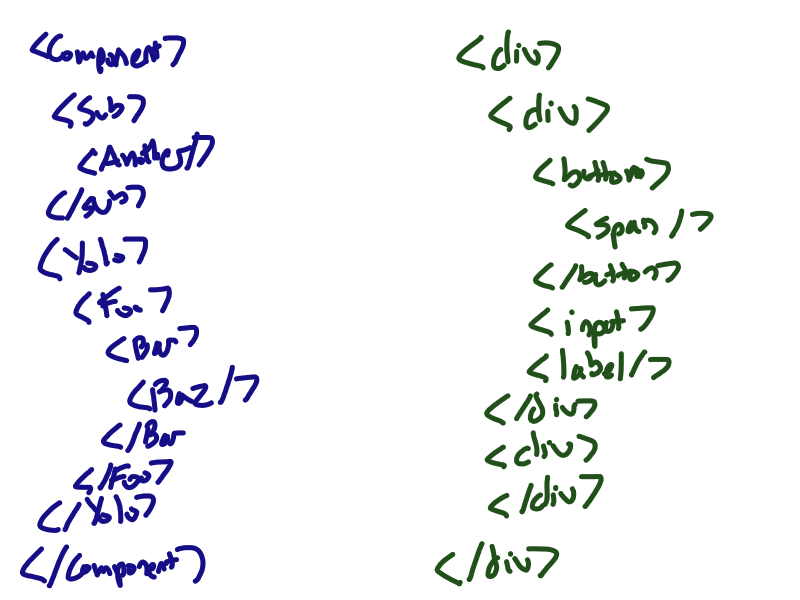 <Component>
<Sub>
<Another/>
</sub>
<Yolo>
<Foo>
<Bar>
<Baz/>
</Bar
</Foo>
</Yolo>
</Component>
<div>
<div>
<button>
<span/>
</button>
<input>
<label/>
</div>
<div>
</div>
</div>